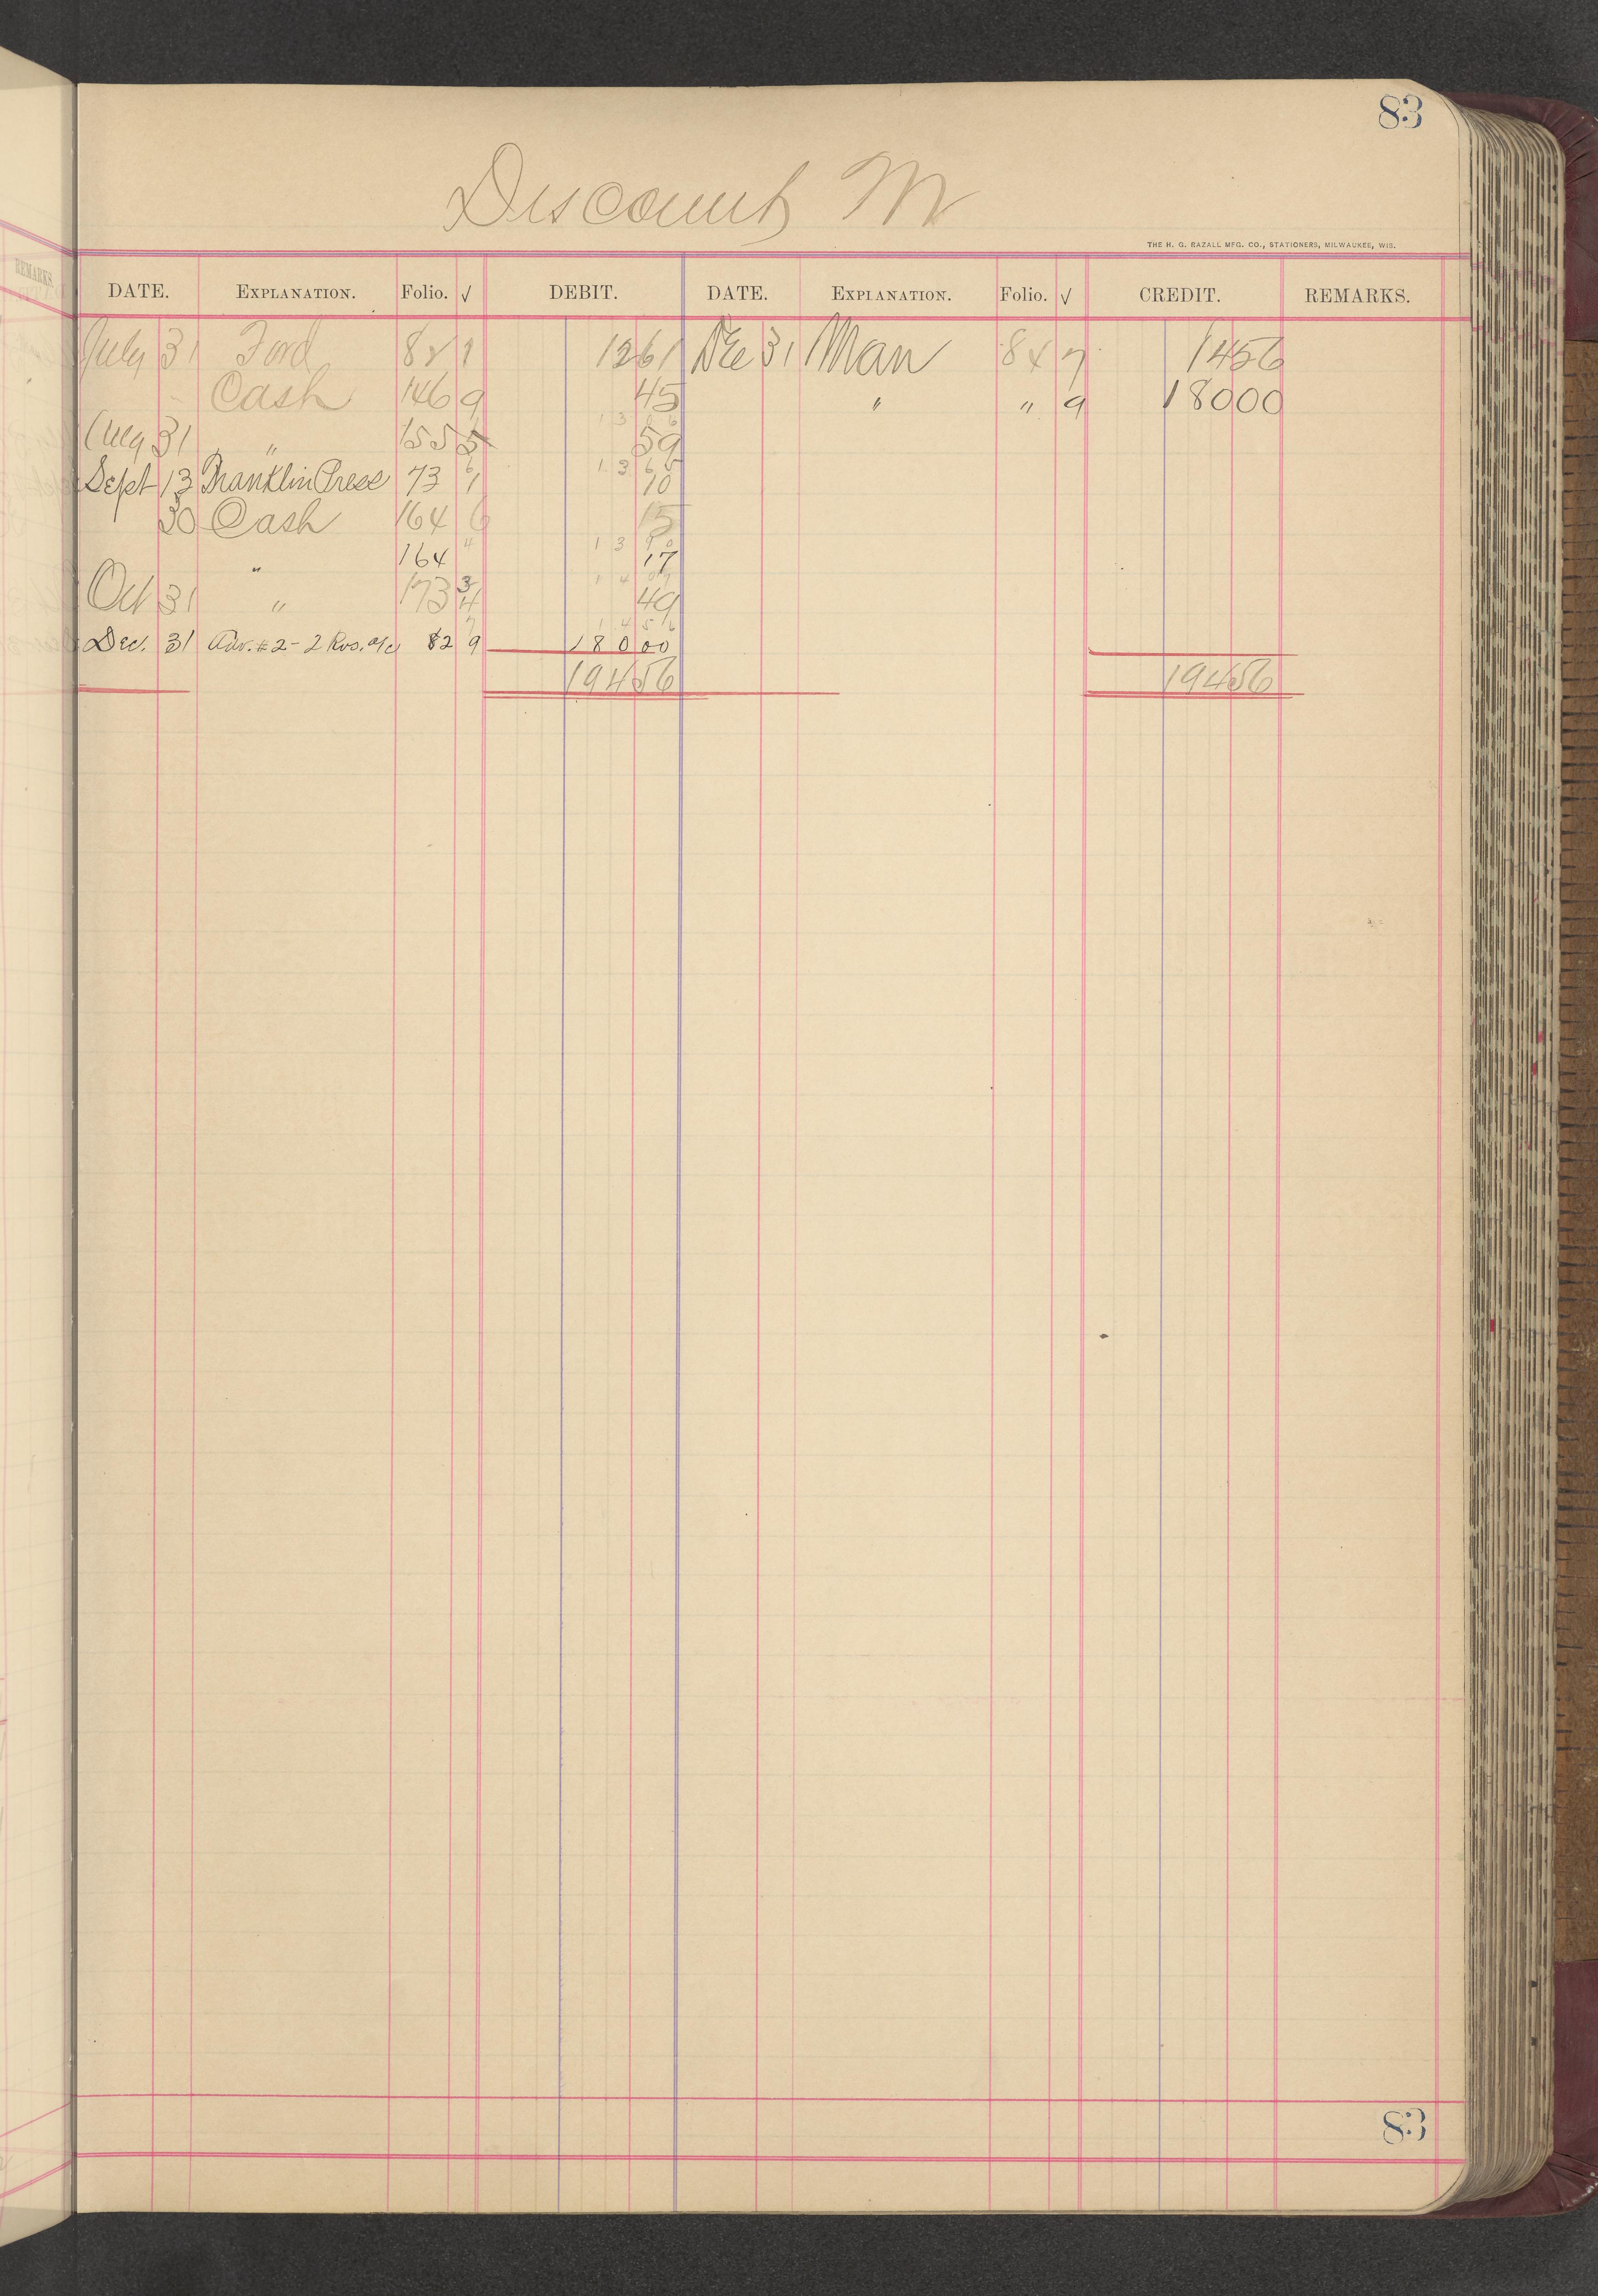 83
Discount M
THE H. G. RAZALL MFG. CO., STATIONERS, MILWAUKEE, WIS.
REMARKS.
DATE. EXPLANATION. Folio. √ DEBIT. DATE. EXPLANATION. Folio. √ CREDIT. REMARKS.
July 31 Ford 82 1 1261 Dec 31 Man 84 7 1456
Cash 146 9 45 " " 9 18000
1306
Aug 31 " 155 5 59
1365
Sept 13 Franklin Press 73 1 10
30 Cash 164 6 15
1390
" 164 4 17
1407
Oct 31 " 173 3/4 49
1456
Dec. 31 Adv. #2-2 Rvs. a/c 82 9 18000
19456 19456
83